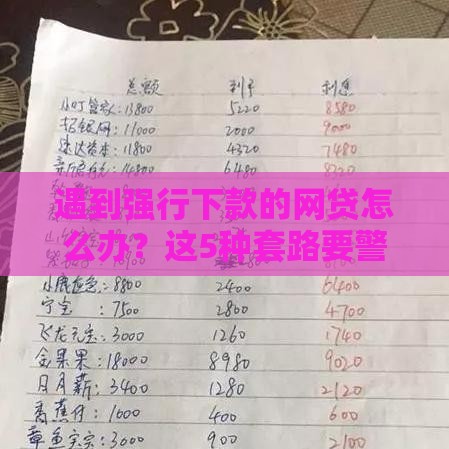 总额 到手 利息
小叮管家:13800 5220 8580
招银网:11000 2000 9000
速达资本:11800 4320 7480
14800 6480 8320
遇到强行下款的网贷怎
么办？这5种套路要警
小鹿应急:8800 2400 6400
宁宝:7500 2800 4700
飞龙元宝:3000 1260 1740
金果果:18000 8980 9020
月月薪:3400 1280 2120
香蕉仔:1000 400 600
章鱼宝宝:3000 900 2100